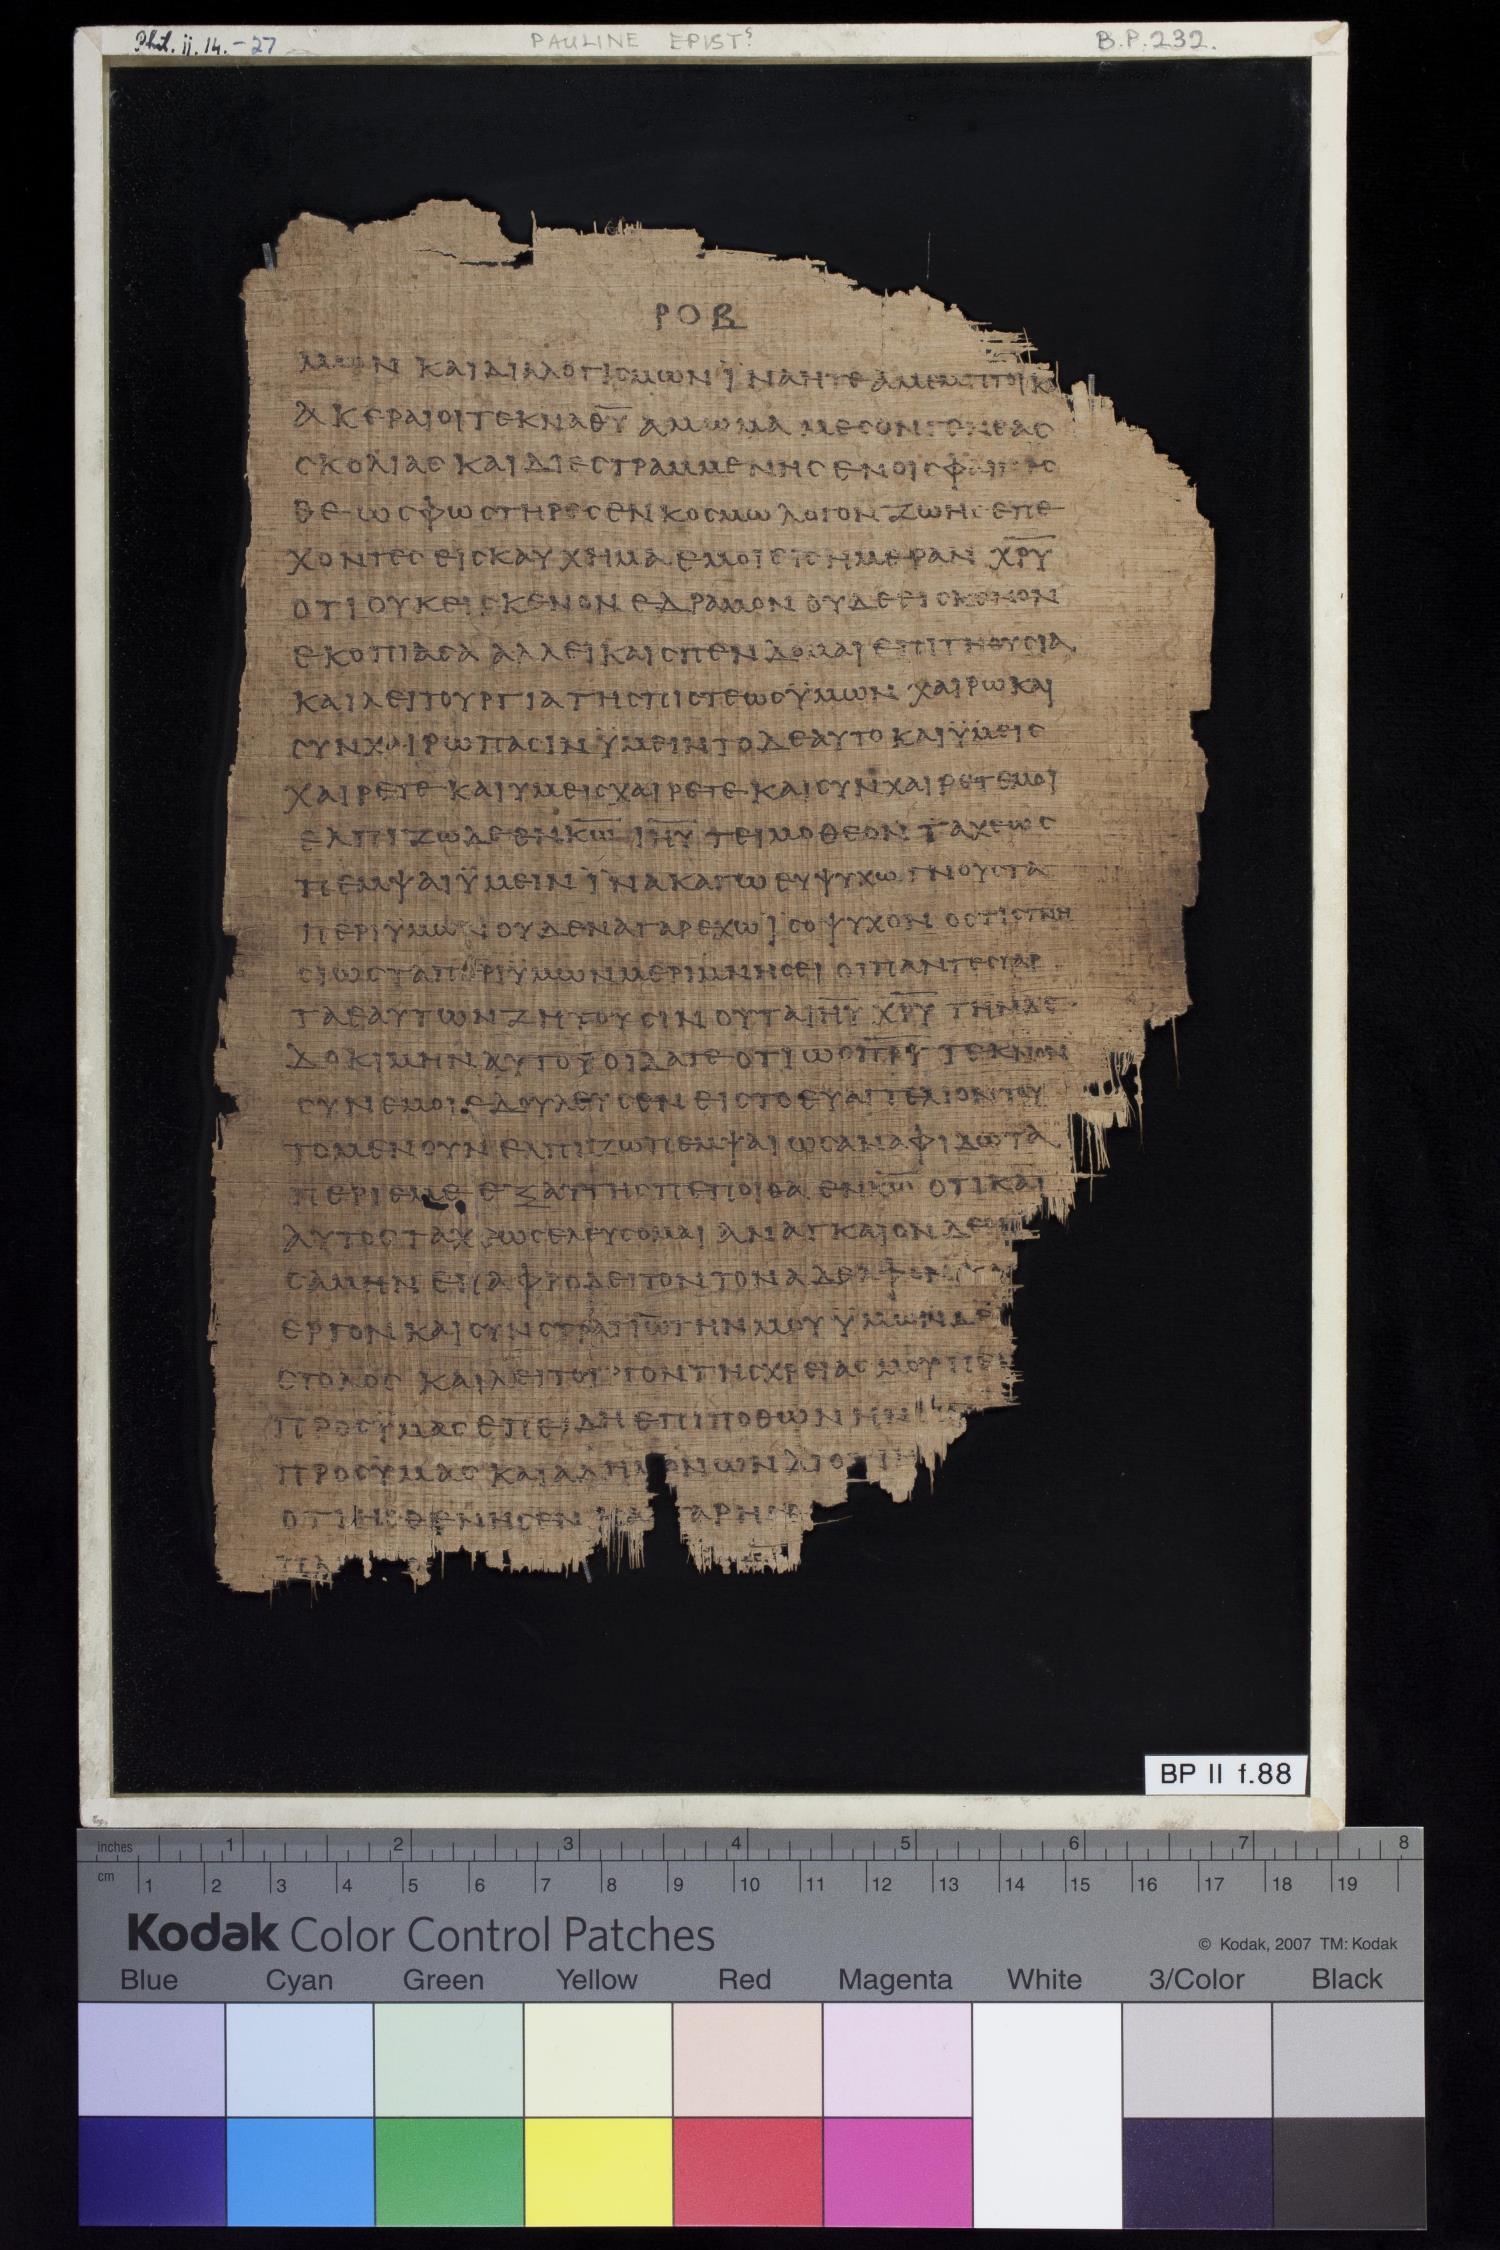 Phil. ii. 14.-27 PAULINE EPISTS B.P. 232.
ΡΟΒ
ΜΩΝ ΚΑΙ ΔΙΑΛΟΓΙΣΜΩΝ ΪΝΑ ΗΤΕ ΑΜΕΜΠΤΟΙ Κ
ΑΚΕΡΑΙΟΙ ΤΕΚΝΑ Θ̅Υ̅ ΑΜΩΜΑ ΜΕΣΟΝ ΓΕΝΕΑΣ
ΣΚΟΛΙΑΣ ΚΑΙ ΔΙΕΣΤΡΑΜΜΕΝΗΣ ΕΝ ΟΙΣ
ΘΕ ΩΣ ΦΩΣΤΗΡΕΣ ΕΝ ΚΟΣΜΩ ΛΟΓΟΝ ΖΩΗΣ ΕΠΕ
ΧΟΝΤΕΣ ΕΙΣ ΚΑΥΧΗΜΑ ΕΜΟΙ ΕΙΣ ΗΜΕΡΑΝ Χ̅Ρ̅Υ̅
ΟΤΙ ΟΥΚ ΕΙΣ ΚΕΝΟΝ ΕΔΡΑΜΟΝ ΟΥΔΕ ΕΙΣ ΚΕΝΟΝ
ΕΚΟΠΙΑΣΑ ΑΛΛ ΕΙ ΚΑΙ ΣΠΕΝΔΟΜΑΙ ΕΠΙ ΤΗ ΘΥΣΙΑ
ΚΑΙ ΛΕΙΤΟΥΡΓΙΑ ΤΗΣ ΠΙΣΤΕΩΣ ΫΜΩΝ ΧΑΙΡΩ ΚΑΙ
ΣΥΝΧΑΙΡΩ ΠΑΣΙΝ ΫΜΕΙΝ ΤΟ ΔΕ ΑΥΤΟ ΚΑΙ ΫΜΕΙΣ
ΧΑΙΡΕΤΕ ΚΑΙ ΥΜΕΙΣ ΧΑΙΡΕΤΕ ΚΑΙ ΣΥΝΧΑΙΡΕΤΕ ΜΟΙ
ΕΛΠΙΖΩ ΔΕ ΕΝ Κ̅Ω̅ Ι̅Η̅Υ̅ ΤΕΙΜΟΘΕΟΝ ΤΑΧΕΩΣ
ΠΕΜΨΑΙ ΫΜΕΙΝ ΪΝΑ ΚΑΓΩ ΕΥΨΥΧΩ ΓΝΟΥΣ ΤΑ
ΠΕΡΙ ΫΜΩΝ ΟΥΔΕΝΑ ΓΑΡ ΕΧΩ ΪΣΟΨΥΧΟΝ ΟΣΤΙΣ ΓΝΗ
ΣΙΩΣ ΤΑ ΠΕΡΙ ΫΜΩΝ ΜΕΡΙΜΝΗΣΕΙ ΟΙ ΠΑΝΤΕΣ ΓΑΡ
ΤΑ ΕΑΥΤΩΝ ΖΗΤΟΥΣΙΝ ΟΥ ΤΑ Ι̅Η̅Υ̅ Χ̅Ρ̅Υ̅ ΤΗΝ ΔΕ
ΔΟΚΙΜΗΝ ΑΥΤΟΥ ΟΙΔΑΤΕ ΟΤΙ ΩΣ Π̅Ρ̅Ι̅ ΤΕΚΝΟΝ
ΣΥΝ ΕΜΟΙ ΕΔΟΥΛΕΥΣΕΝ ΕΙΣ ΤΟ ΕΥΑΓΓΕΛΙΟΝ ΤΟΥ
ΤΟ ΜΕΝ ΟΥΝ ΕΛΠΙΖΩ ΠΕΜΨΑΙ ΩΣ ΑΝ ΑΦΙΔΩ ΤΑ
ΠΕΡΙ ΕΜΕ ΕΞΑΥΤΗΣ ΠΕΠΟΙΘΑ ΕΝ Κ̅Ω̅ ΟΤΙ ΚΑΙ
ΑΥΤΟΣ ΤΑΧΕΩΣ ΕΛΕΥΣΟΜΑΙ ΑΝΑΓΚΑΙΟΝ ΔΕ
ΣΑΜΗΝ ΕΠΑΦΡΟΔΕΙΤΟΝ ΤΟΝ ΑΔΕΛΦΟΝ
ΕΡΓΟΝ ΚΑΙ ΣΥΝΣΤΡΑΤΙΩΤΗΝ ΜΟΥ ΫΜΩΝ ΔΕ
ΣΤΟΛΟΣ ΚΑΙ ΛΕΙΤΟΥΡΓΟΝ ΤΗΣ ΧΡΕΙΑΣ ΜΟΥ ΠΕ
ΠΡΟΣ ΫΜΑΣ ΕΠΕΙΔΗ ΕΠΙΠΟΘΩΝ ΗΝ
ΠΡΟΣ ΫΜΑΣ ΚΑΙ ΑΔΗΜΟΝΩΝ ΔΙΟΤΙ Η
ΟΤΙ ΗΣΘΕΝΗΣΕΝ ΚΑΙ ΓΑΡ ΗΣΘΕ
BP II f.88
inches 1 2 3 4 5 6 7 8
cm 1 2 3 4 5 6 7 8 9 10 11 12 13 14 15 16 17 18 19
Kodak Color Control Patches
© Kodak, 2007 TM: Kodak
Blue Cyan Green Yellow Red Magenta White 3/Color Black